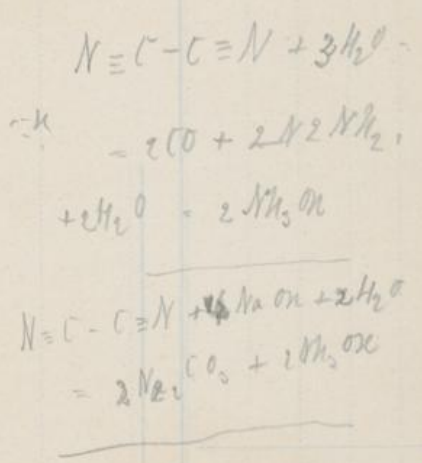 N≡C-C≡N + 3H₂O
= 2CO + 2N2NH₂,
+2H₂O = 2NH₃OH
N≡C-C≡N + 4NaOH + 2H₂O
= 2Na₂CO₃ + 2NH₃OH